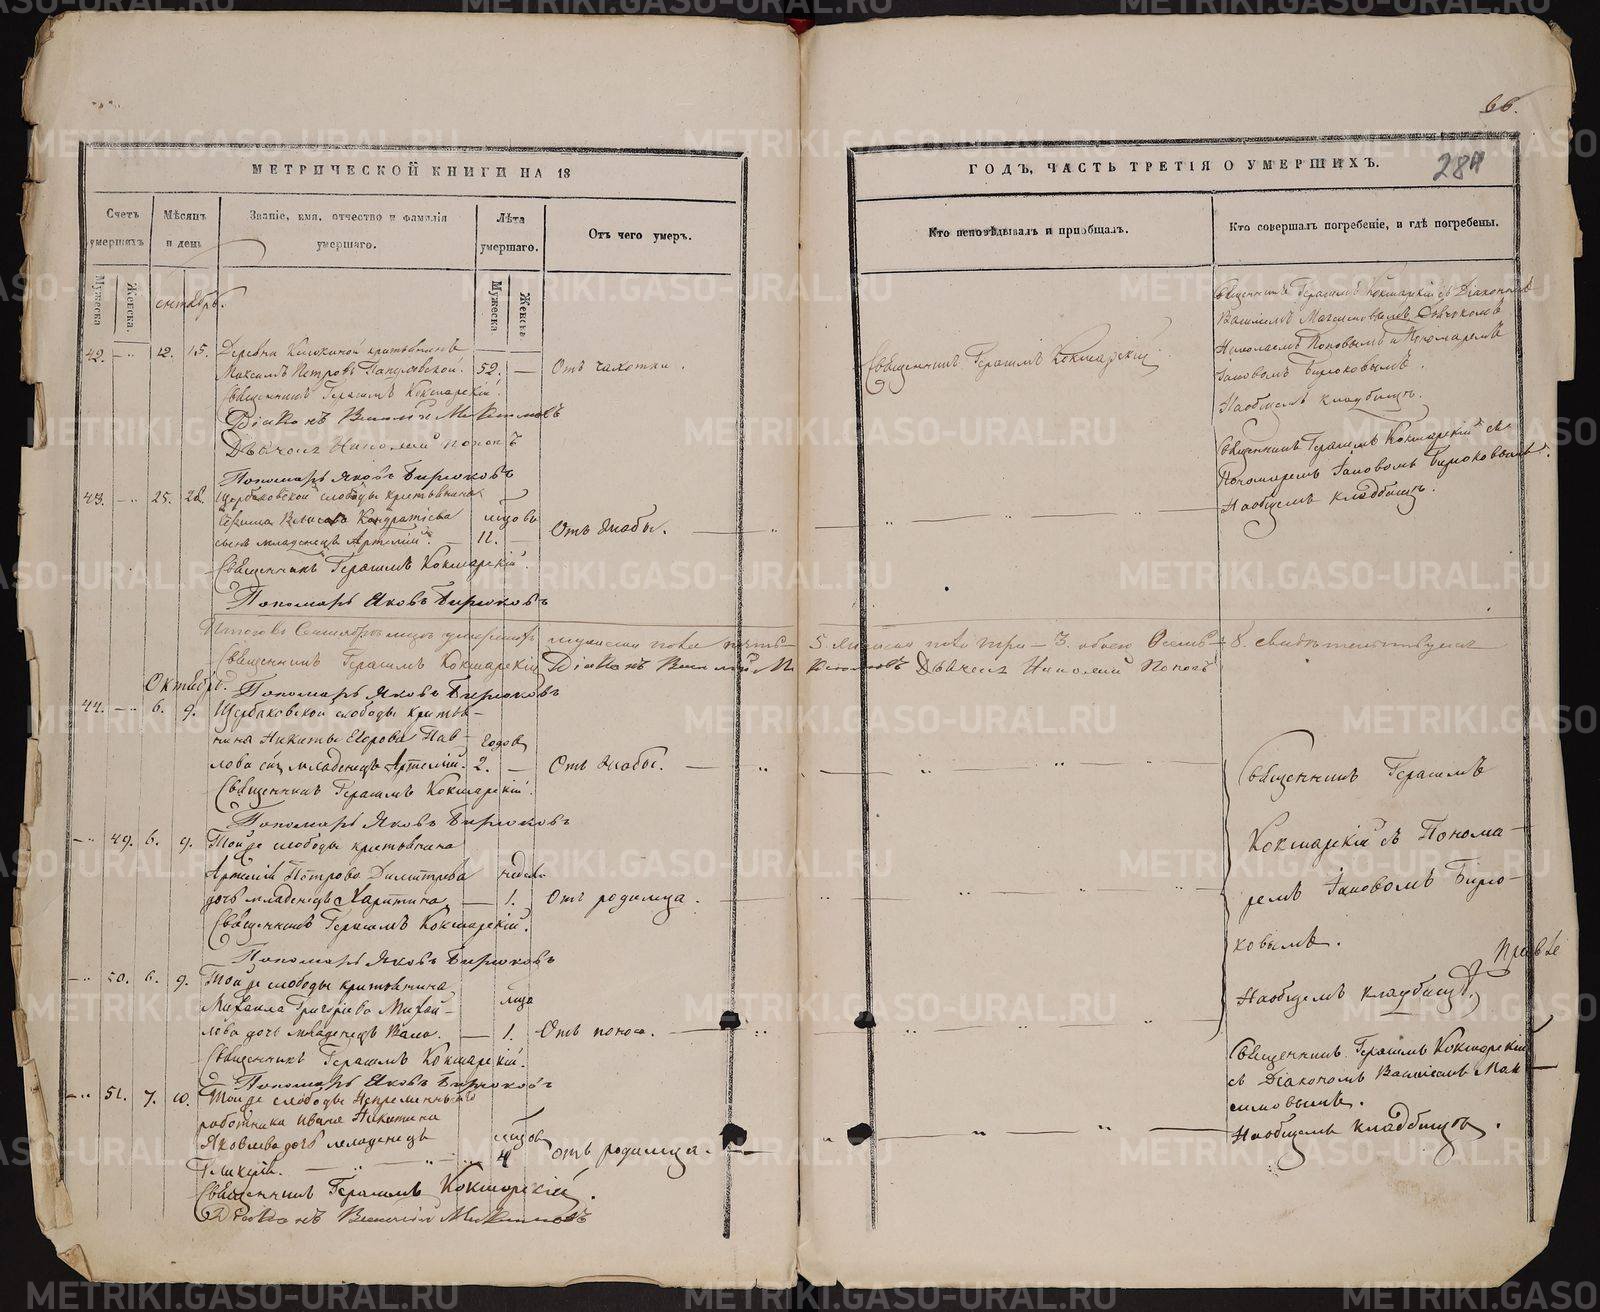 66.
МЕТРИЧЕСКОЙ КНИГИ НА 18
ГОДЪ, ЧАСТЬ ТРЕТІЯ О УМЕРШИХЪ.
284
Счетъ умершихъ
Мѣсяцъ и день
Званіе, имя, отчество и фамилія умершаго.
Лѣта умершаго.
Отъ чего умеръ.
Кто исповѣдывалъ и пріобщалъ.
Кто совершалъ погребеніе, и гдѣ погребены.
Мужеска
Женска.
Мужеска
Женскъ
сентябрь.
42. — 12. 15. Деревни крестьянинъ
Максимъ Петровъ 52. — Отъ чахотки.
Священникъ Герасимъ Кокшарскій
Священникъ Герасимъ Кокшарскій.
Діаконъ Василій Максимовъ
Дьячекъ Николай Поповъ
Пономарь Яковъ Бирюковъ
Священникъ Герасимъ Кокшарскій съ Діакономъ
Василіемъ Максимовымъ, Дьячкомъ
Николаемъ Поповымъ и Пономаремъ
Іаковомъ Бирюковымъ.
На общемъ кладбищѣ.
43. — 25. 28. Щербаковской слободы крестьянина
Кондратіева
сынъ младенецъ Артемій. — 11. — Отъ жабы.
Священникъ Герасимъ Кокшарскій.
Пономарь Яковъ Бирюковъ
Священникъ Герасимъ Кокшарскій съ
Пономаремъ Іаковомъ Бирюковымъ.
На общемъ кладбищѣ.
Итого въ Сентябрѣ умершихъ мужеска пола пять — 5. Женска пола три — 3. обоего Осмь — 8.
Священникъ Герасимъ Кокшарскій Діаконъ Василій Максимовъ Дьячекъ Николай Поповъ
Пономарь Яковъ Бирюковъ
Октябрь.
44. — 6. 9. Щербаковской слободы крестья-
нина Никиты Егорова Пав- годовъ
лова сынъ младенецъ Артемій. 2. — Отъ жабы.
Священникъ Герасимъ Кокшарскій.
Пономарь Яковъ Бирюковъ
— 49. 6. 9. Тойже слободы крестьянина
Петрова Димитріева недѣль
дочь младенецъ Харитина — 1. Отъ родимца.
Священникъ Герасимъ Кокшарскій.
Пономарь Яковъ Бирюковъ
— 50. 6. 9. Тойже слободы крестьянина
Михаила Григоріева Михай-
лова дочь младенецъ — 1. Отъ поноса.
Священникъ Герасимъ Кокшарскій.
Пономарь Яковъ Бирюковъ
Священникъ Герасимъ
Кокшарскій съ Понома-
ремъ Іаковомъ Бирю-
ковымъ.
На общемъ кладбищѣ.
— 51. 7. 10. Тойже слободы Непремѣннаго
работника Ивана Никитина
Яковлева дочь младенецъ
Гликерія. — 4 отъ родимца.
Священникъ Герасимъ Кокшарскій.
Діаконъ Василій Максимовъ
Священникъ Герасимъ Кокшарскій
съ Діакономъ Василіемъ Мак-
симовымъ.
На общемъ кладбищѣ.
METRIKI.GASO-URAL.RU